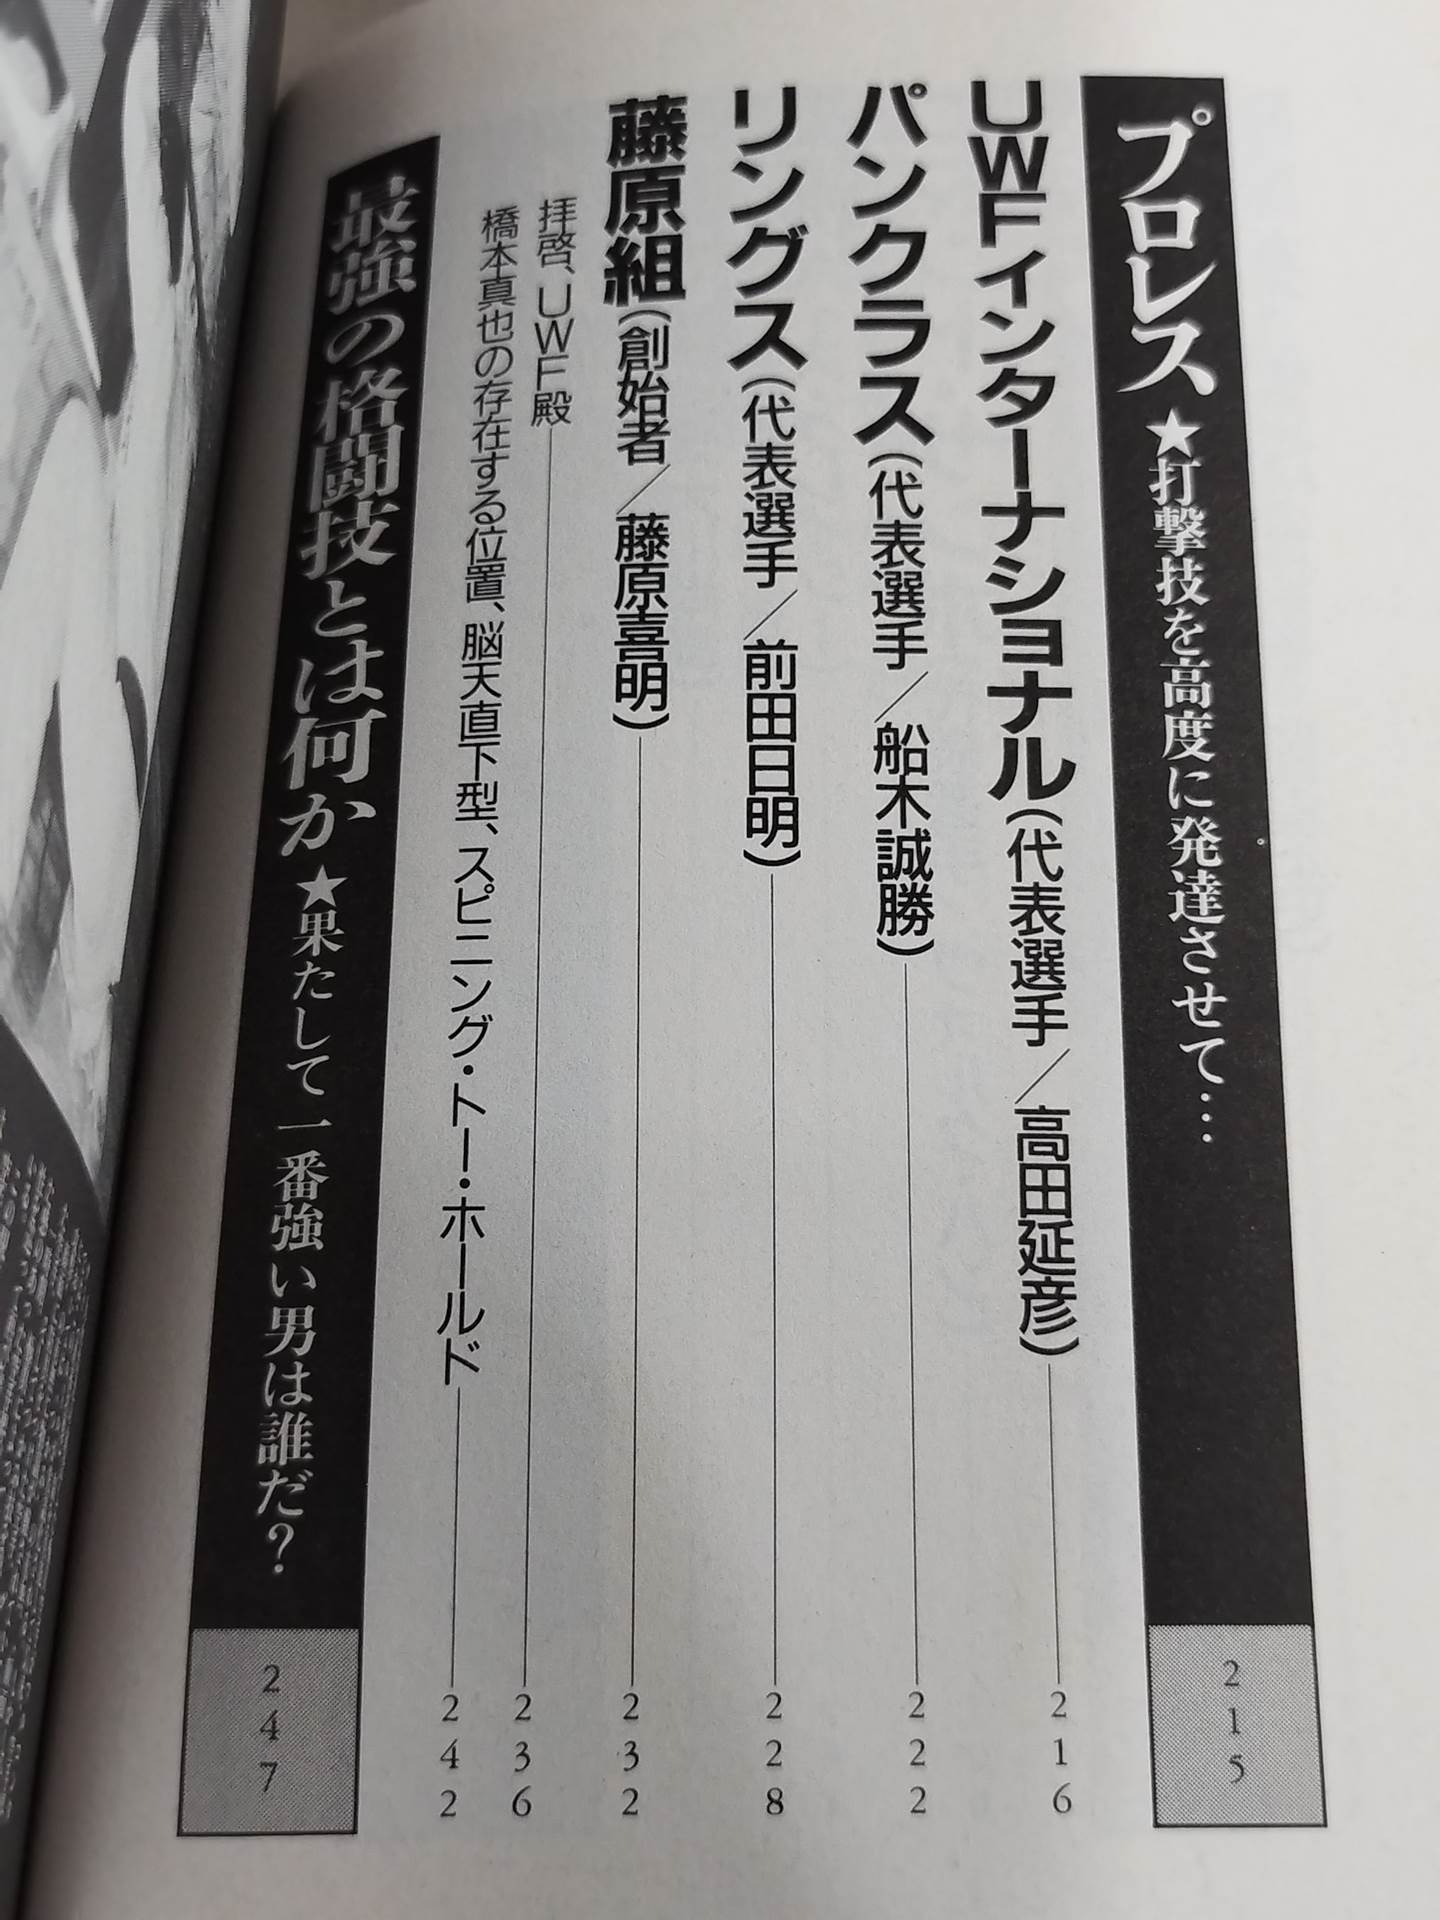 プロレス★打撃技を高度に発達させて… 215
UWFインターナショナル(代表選手／高田延彦) 216
パンクラス(代表選手／船木誠勝) 222
リングス(代表選手／前田日明) 228
藤原組(創始者／藤原喜明) 232
拝啓、UWF殿 236
橋本真也の存在する位置、脳天直下型、スピニング・トー・ホールド 242
最強の格闘技とは何か★果たして一番強い男は誰だ? 247